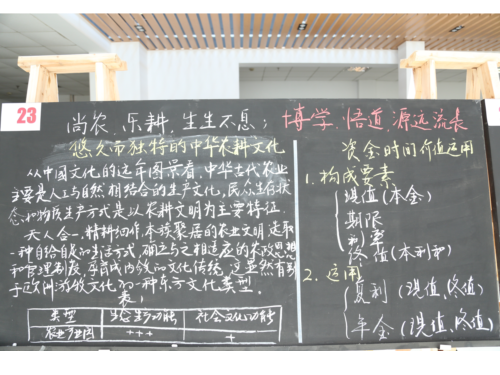 23
尚农、乐耕，生生不息；博学、悟道、源远流长
悠久而独特的中华农耕文化
从中國文化的这年图景看，中华古代农业
主要是人工与自然相结合的生产文化，民众生存状
态和物质生产方式是以农耕文明为主要特征
天人合一，精耕细作，本族聚居的农业文明
一种自给自足的生活方式，确立与之相适应的农政思想
和管理制度，
于欧洲游牧文化的一种东方文化类型。
表1
类型 生态生产功能 社会文化功能
农业 +++ +
资金时间价值运用
1. 构成要素
现值(本金)
期限
利率
终值(本利和)
2. 运用
复利(现值、终值)
年金(现值、终值)